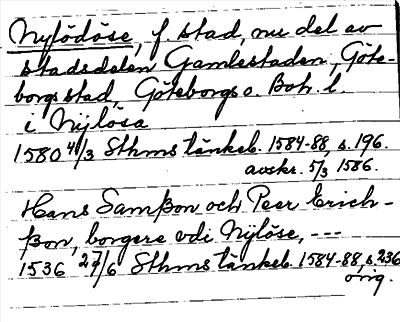 Nylödöse, f. stad, nu del av
stadsdelen Gamlestaden, Göte-
borgs stad, Göteborgs o. Boh. l.
i Nijlösa
1580 4/3 Sthms tänkeb. 1584-88, s. 196.
avskr. 5/3 1586.
Hans Samßon och Peer Erich-
ßon, borgere vdi Nylöse, ---
1536 27/6 Sthms tänkeb. 1584-88, s. 236
orig.